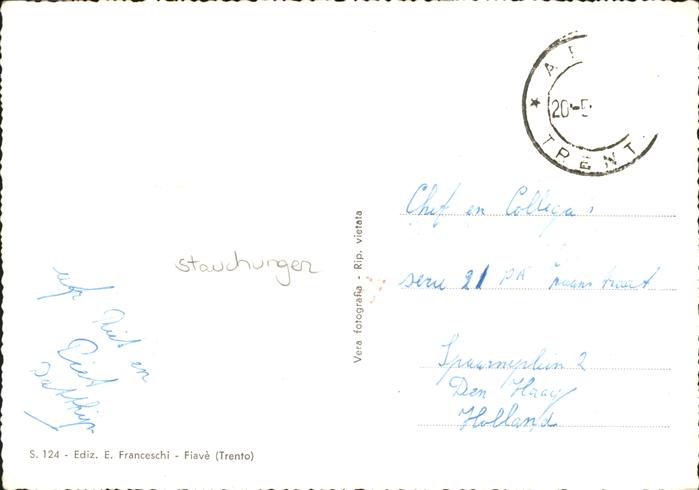 A
20-5
TRENT
Chef en Collega's
serie 21 PA
Den Haag
Holland
Stauchungen
Piet en
Riet
Vera fotografia - Rip. vietata
S. 124 - Ediz. E. Franceschi - Fiavè (Trento)